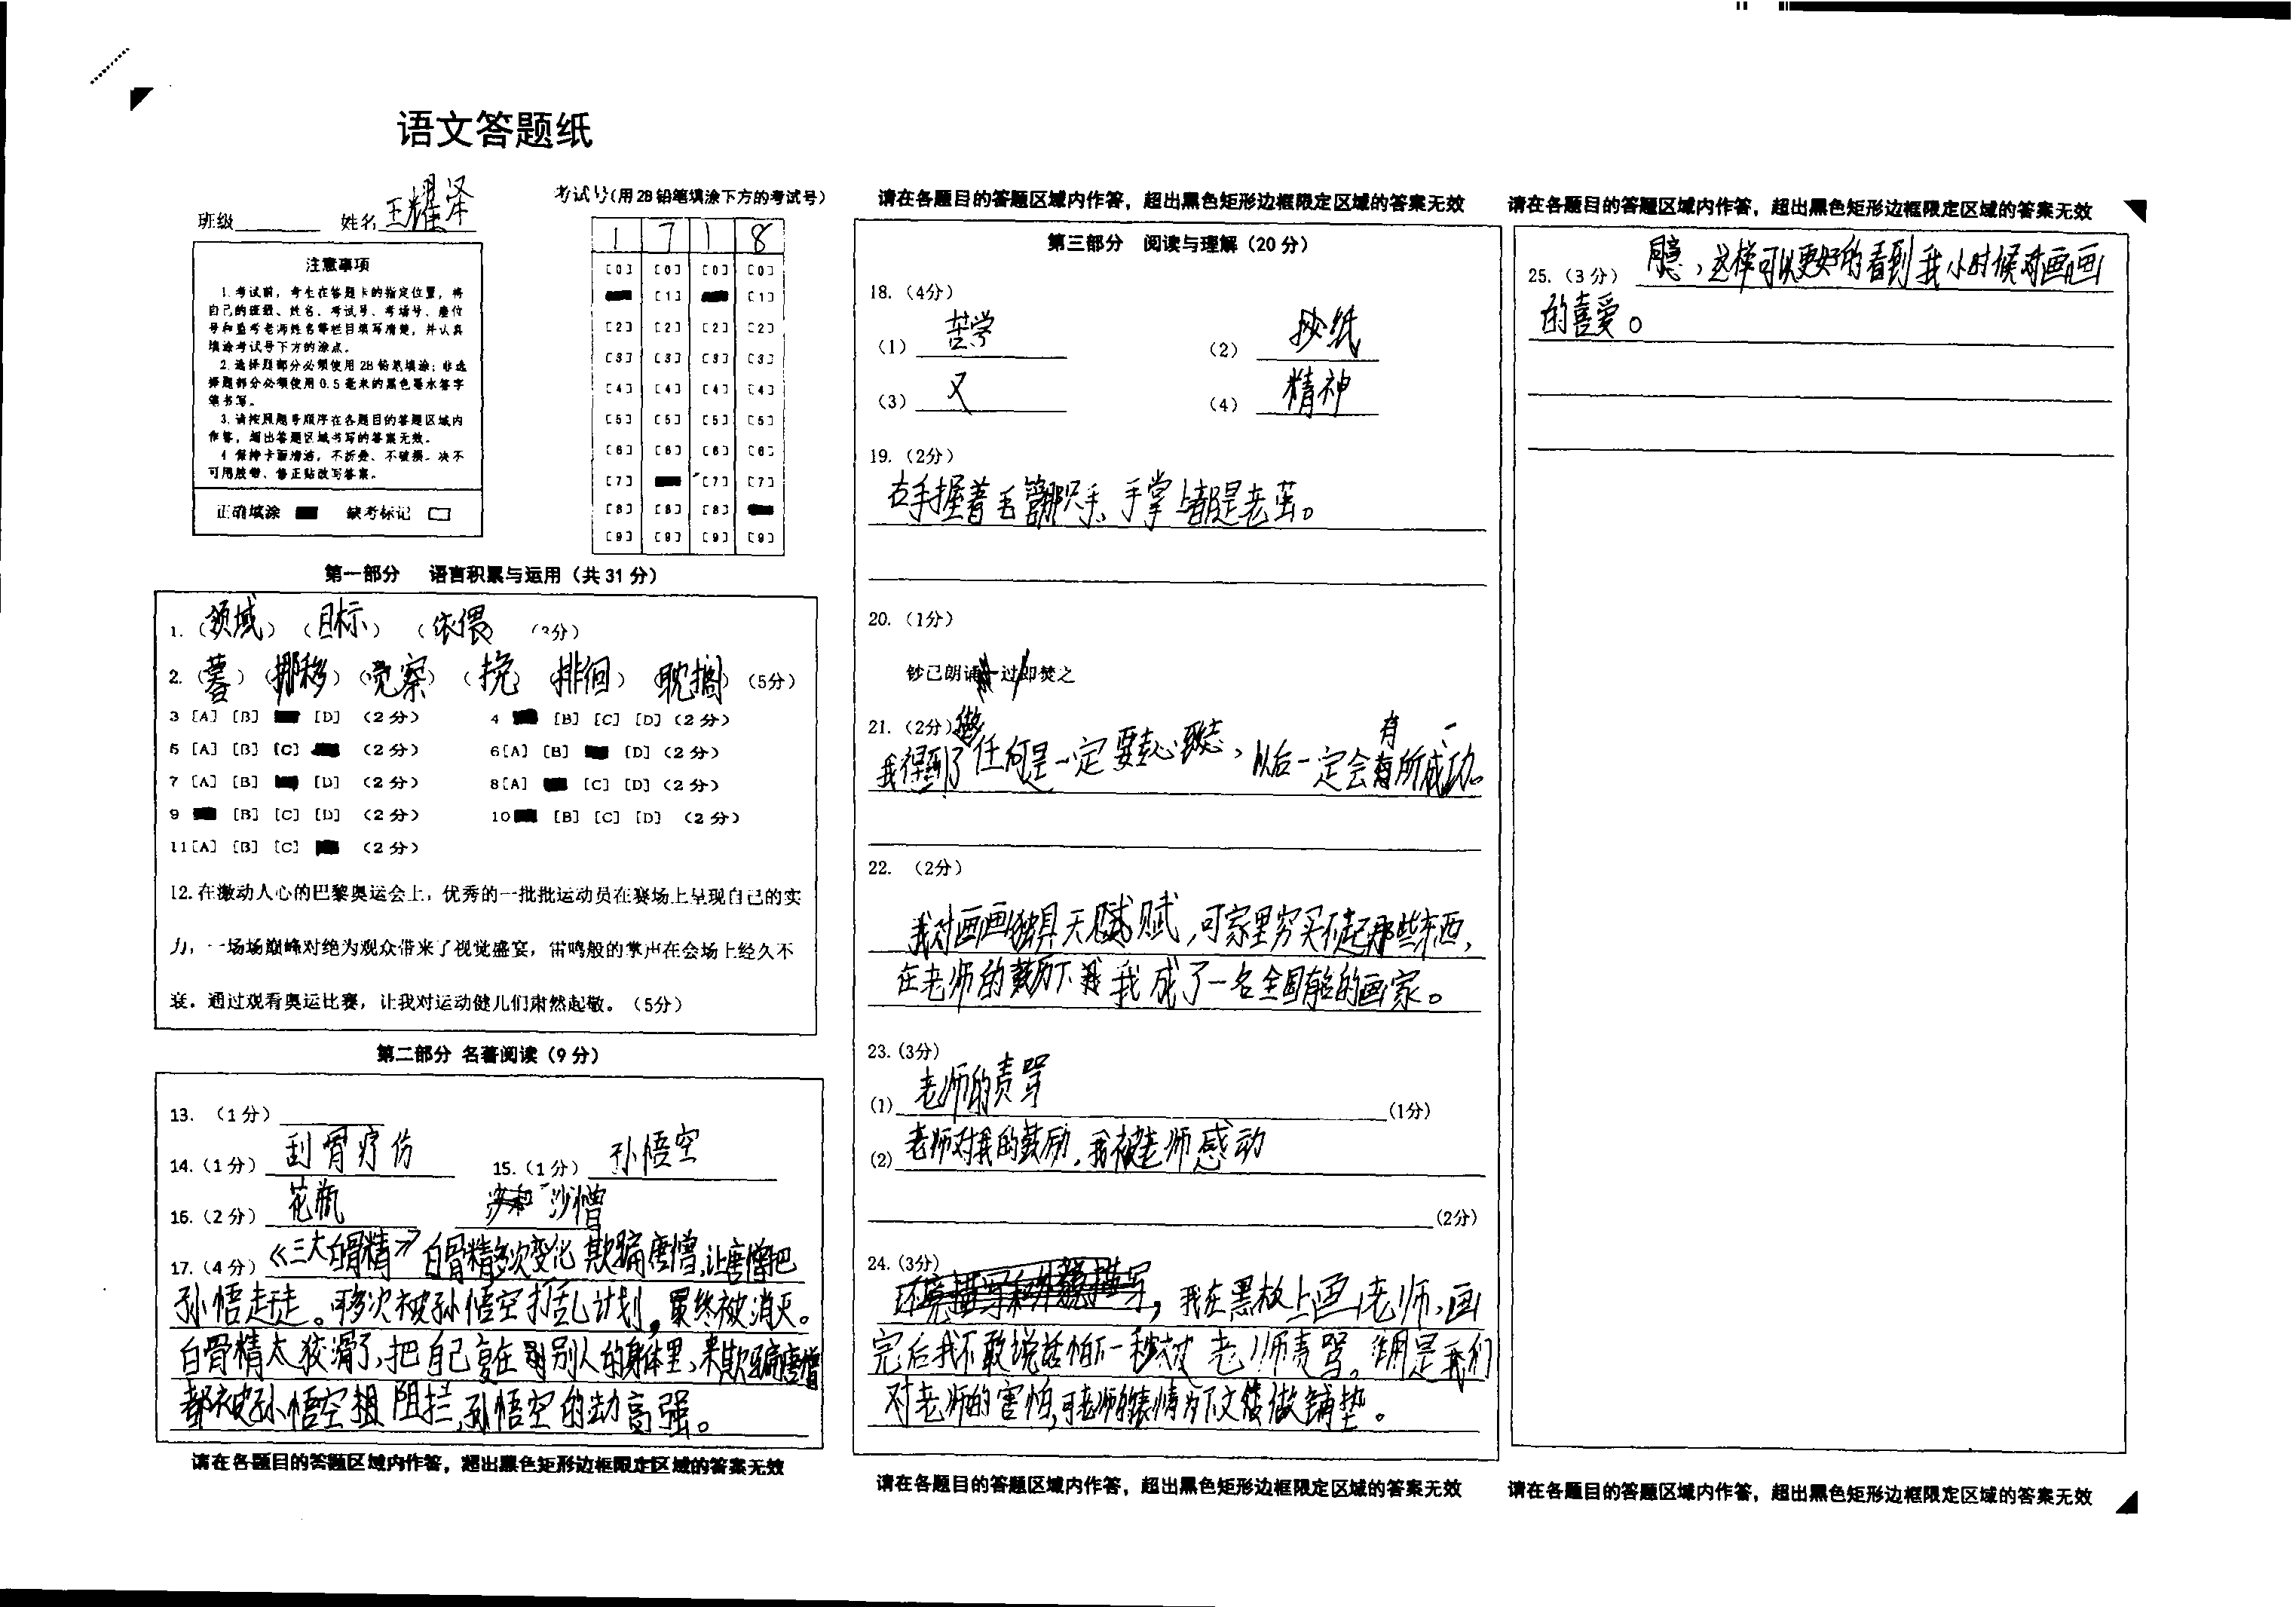 语文答题纸
班级 姓名 王耀泽
考试号(用2B铅笔填涂下方的考试号)
1 7 1 8
[0] [0] [0] [0]
[1] [1]
[2] [2] [2] [2]
[3] [3] [3] [3]
[4] [4] [4] [4]
[5] [5] [5] [5]
[6] [6] [6] [6]
[7] [7] [7]
[8] [8] [8]
[9] [9] [9] [9]
注意事项
1.考试前，考生在答题卡的指定位置，将
自己的班级、姓名、考试号、考场号、座位
号和监考老师姓名等栏目填写清楚，并认真
填涂考试号下方的涂点。
2.选择题部分必须使用2B铅笔填涂；非选
择题部分必须使用0.5毫米的黑色墨水签字
笔书写。
3.请按照题号顺序在各题目的答题区域内
作答，超出答题区域书写的答案无效。
4 保持卡面清洁，不折叠、不破损。决不
可用胶带、修正贴改写答案。
正确填涂 缺考标记
第一部分 语言积累与运用（共31分）
1.（领域）（目标）（依偎 （3分）
2.（蓦）（挪移）（觉察）（挠） 徘徊） 耽搁）（5分）
3 [A] [B] [D] （2分） 4 [B] [C] [D]（2分）
5 [A] [B] [C] （2分） 6[A] [B] [D]（2分）
7 [A] [B] [D] （2分） 8[A] [C] [D]（2分）
9 [B] [C] [D] （2分） 10 [B] [C] [D] （2分）
11[A] [B] [C] （2分）
12.在激动人心的巴黎奥运会上，优秀的一批批运动员在赛场上呈现自己的实
力，一场场巅峰对绝为观众带来了视觉盛宴，雷鸣般的掌声在会场上经久不
衰。通过观看奥运比赛，让我对运动健儿们肃然起敬。（5分）
第二部分 名著阅读（9分）
13. （1分）
14.（1分） 刮骨疗伤 15.（1分） 孙悟空
16.（2分） 花瓶 沙僧
17.（4分）《三大白骨精》白骨精多次变化 欺骗唐僧,让唐僧把
孙悟赶走。可多次被孙悟空打乱计划，最终被消灭。
白骨精太狡滑了,把自己变在别人的身体里,来欺骗唐僧
都被孙悟空阻拦,孙悟空的功高强。
请在各题目的答题区域内作答，超出黑色矩形边框限定区域的答案无效
请在各题目的答题区域内作答，超出黑色矩形边框限定区域的答案无效
第三部分 阅读与理解（20分）
18.（4分）
(1) 苦学 (2) 抄纸
(3) 又 (4) 精神
19.（2分）
右手握着毛管那只手、手掌上都是老茧。
20.（1分）
钞已朗诵一过即焚之
21.（2分）
我得到了做任何是一定要专心致志，以后一定会有所成功。
22. （2分）
我对画画独具天赋,可家里穷买不起那些东西,
在老师的鼓励下我成了一名全国有名的画家。
23.(3分)
(1) 老师的责骂 (1分)
(2) 老师对我的鼓励,我被老师感动
(2分)
24.(3分)
环境描写和外貌描写，我在黑板上画老师、画
完后我不敢说话怕下一秒就被老师责骂。作用是我们
对老师的害怕,可老师的表情为下文做铺垫。
请在各题目的答题区域内作答，超出黑色矩形边框限定区域的答案无效
请在各题目的答题区域内作答，超出黑色矩形边框限定区域的答案无效
25.（3分） 同意、这样可以更好的看到我小时候对画画
的喜爱。
请在各题目的答题区域内作答，超出黑色矩形边框限定区域的答案无效